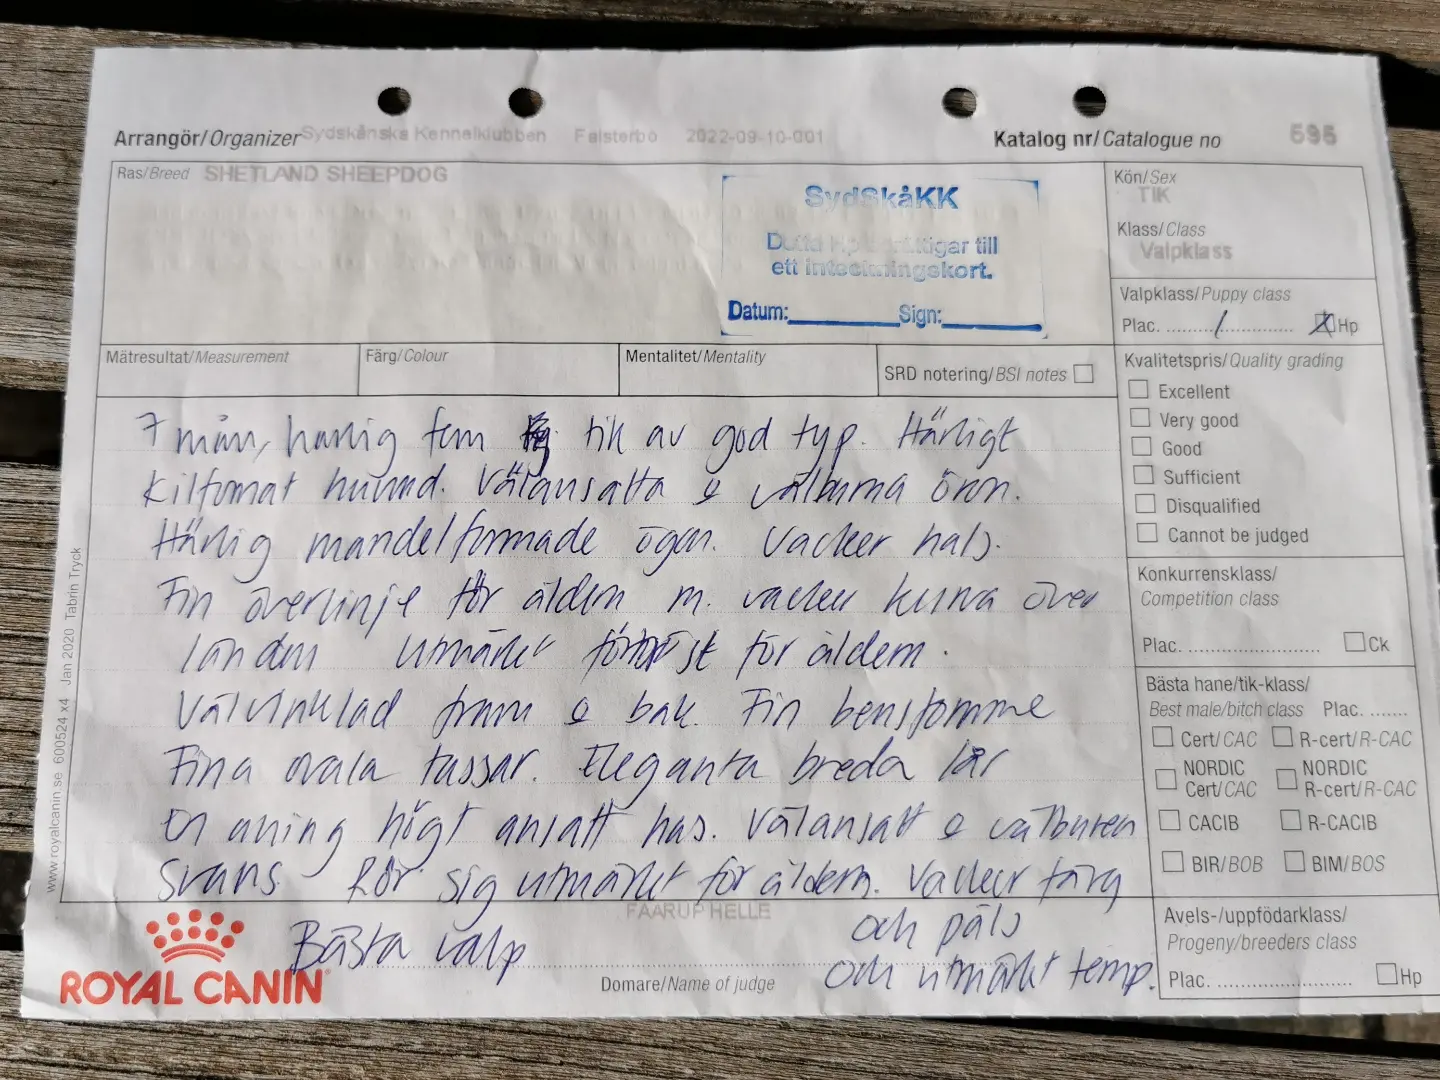 Arrangör/Organizer Sydskånska Kennelklubben Falsterbo 2022-09-10-001 Katalog nr/Catalogue no 595
Ras/Breed SHETLAND SHEEPDOG
SydSkåKK
till
ett
Datum: Sign:
Kön/Sex
TIK
Klass/Class
Valpklass
Valpklass/Puppy class
Plac. 1 X Hp
Mätresultat/Measurement Färg/Colour Mentalitet/Mentality SRD notering/BSI notes
Kvalitetspris/Quality grading
Excellent
Very good
Good
Sufficient
Disqualified
Cannot be judged
Konkurrensklass/
Competition class
Plac. Ck
Bästa hane/tik-klass/
Best male/bitch class Plac.
Cert/CAC R-cert/R-CAC
NORDIC Cert/CAC NORDIC R-cert/R-CAC
CACIB R-CACIB
BIR/BOB BIM/BOS
Avels-/uppfödarklass/
Progeny/breeders class
Plac. Hp
7 mån, härlig fem tik av god typ. Härligt
kilformat huvud. Välansatta & välburna öron.
Härlig mandelformade ögon. Vacker hals.
Fin överlinje för åldern m. vacker kurva över
länden utmärkt förbröst för åldern.
Välvinklad fram & bak. Fin benstomme
Fina ovala tassar. Eleganta breda lår
En aning högt ansatt has. Välansatt & välburen
Svans. Rör sig utmärkt för åldern. Vacker färg
och päls
och utmärkt temp.
Bästa valp
FAARUP HELLE
Domare/Name of judge
ROYAL CANIN
www.royalcanin.se 600524 x4 Jan 2020 Tabrin Tryck